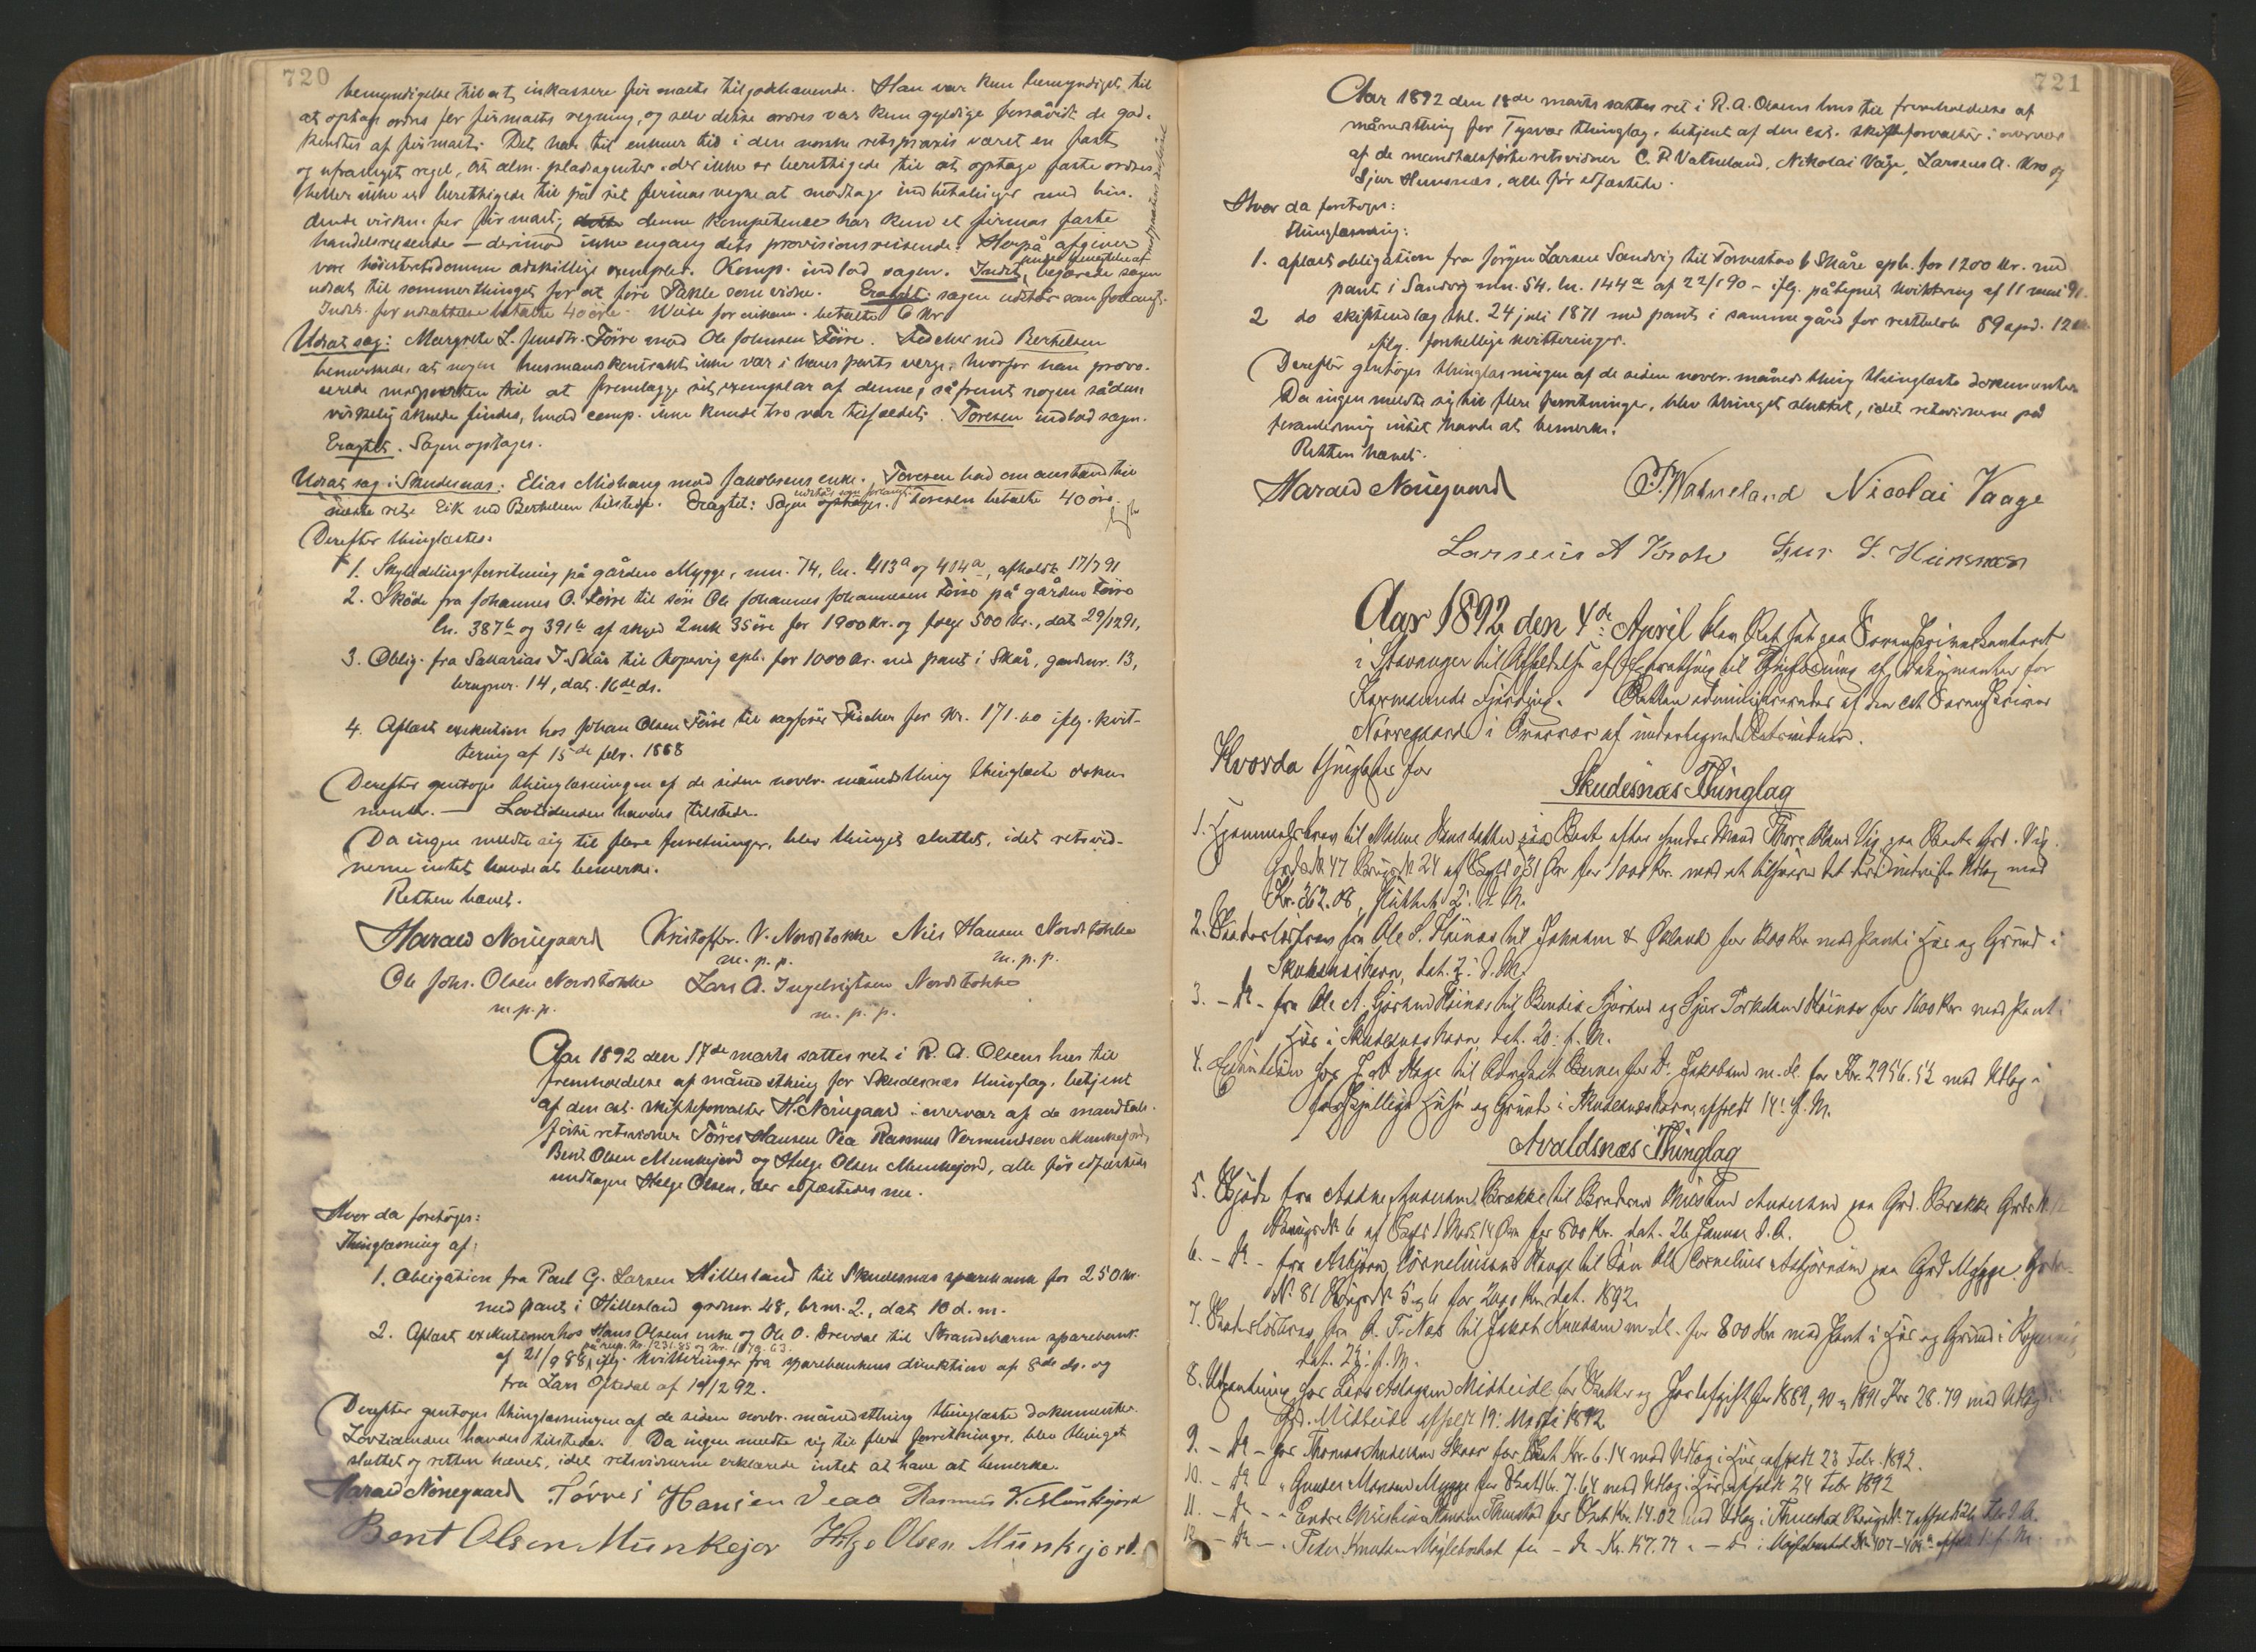 720
bemyndigelse til at inkassere firmaets tilgodehavende. Han var kun bemyndiget til
at optage ordres for firmaets regning, og selv disse ordres var kun gyldige forsåvidt de god-
kjendtes af firmaet. Det har til enhver tid i den norske retspraxis været en fast
og ufravigel regel, at alm. pladsagenter, der ikke er berettigede til at optage faste ordres
heller ikke er berettigede til på sit firmas vegne at modtage indbetalinger med bin-
dende virkn. for firmaet; denne kompetence har kun et firmas faste
handelsreisende – derimod ikke engang dets provisionsreisende. Herpå afgiver
vore höiesteretsdomme adskillige exempler. Komp. indlod sagen. Indst. begjærede sagen
udsat til sommerthinget for at före Takle som vidne. Eragtet: sagen udstår som forlangt.
Indst. for udsættelse betalte 40 öre. Wiese for enkem. betalte 6 Kr
Udsat sag: Margrete L. Förre mod Ole Johnsen Förre. Fischer ved Bertelsen
bemærkedes at nogen husmandskontrakt ikke var i hans parts værge, hvorfor han provo-
cerede modparten til at fremlægge sit exemplar af denne, såfremt nogen sådan
virkelig skulde findes, hvad comp. ikke kunde tro var tilfældet. Toresen indlod sagen.
Eragtet. Sagen optages.
Udsat sag i Skudesnæs: Elias Midhaug mod Jakobsens enke. Toresen bad om anstand til
næste ret. Eik ved Bertelsen tilstede. Eragtet: Sagen udstår som forlangt. Toresen betalte 40 öre.
Derefter thinglæstes:
1. Skylddelingsforretning på gården Mygge, mn. 74, ln. 413a og 414a, afholdt 17/7 91
2. Sköde fra Johannes O. Förre til sön Ole Johannes Johannesen Förre på gården Förre
ln. 387b og 391b af skyld 2 mk 35 öre for 1900 kr. og folge 500 kr., dat 29/12 91,
3. Oblig. fra Sakarias J. Skår til Kopervig spb. for 1000 kr. ved pant i Skår, gårdsnr. 13,
brugsnr. 14, dat. 16de ds.
4. Aflæst exekution hos Johan Olsen Förre til sagförer Fischer for Kr. 171.60 iflg. kvit-
tering af 15de febr. 1888
Derefter gentoges thinglæsningen af de siden novbr. månedsthing thinglæste doku-
menter. — Lovtidenden havdes tilstede.
Da ingen meldte sig til flere forretninger, blev thinget sluttet, idet retsvid-
nerne intet havde at bemærke.
Retten hævet.
Harald Nörregaard Kristoffer V. Nordstokke Nils Hansen Nordstokke
m. p. p. m. p. p.
Ole Johs. Olsen Nordstokke Lars A. Ingebrigtsen Nordstokke
m. p. p. m. p. p.
Aar 1892 den 17de marts sattes ret i R. A. Olsens hus til
fremholdelse af månedsthing for Skudesnæs thinglag, betjent
af den cst. skifteforvalter H. Nörregaard i overvær af de mandtals-
förte retsvidner Törres Hansen Vea Rasmus Vermundsen Munkejord,
Bent Olsen Munkejord og Helge Olsen Munkejord, alle för edfæstede
undtagen Helge Olsen, der edfæstedes nu.
Hvor da foretoges:
Thinglæsning af:
1. Obligation fra Paul G. Larsen Hillesland til Skudesnæs sparebank for 250 kr.
med pant i Hillesland gårdsnr. 48, brnr. 2., dat 10 d. m.
2. Aflæst exekutioner hos Hans Olsens enke og Ole O. Drevdal til Strandebarm sparebank
af 21/9 88, iflg. kvitteringer fra sparebankens direktion af 8de ds. og
fra Lars Oftedal af 19/2 92.
Derefter gentoges thinglæsningen af de siden novbr. månedsthing thinglæste dokumenter.
Lovtidenden havdes tilstede. Da ingen meldte sig til flere forretninger, blev thinget
sluttet og retten hævet, idet retsvidnerne erklærede intet at have at bemerke.
Harald Nörregaard Törres Hansen Veaa Rasmus V. Munkejord
Bent Olsen Munkejor Helge Olsen Munkejord.
721
Aar 1892 den 18de marts sattes ret i R. A. Olsens hus til fremholdelse af
månedsthing for Tysvær thinglag, betjent af den cst. skifteforvalter i overvær
af de mandtalsförte retsvidner C. P. Vatneland, Nikolai Våge, Larseus A. Kro og
Sjur Hunsnæs, alle för edfæstede.
Hvor da foretoges:
thinglæsning:
1. aflæst obligation fra Jörgen Larsen Sandvig til Torvestad & Skåre spb. for 1200 kr. med
pant i Sandvig mn. 54, ln. 144a af 22/1 90 – iflg. påtegnet kvittering af 11 mai 91.
2 do skifteudlæg thl. 24 juli 1871 med pant i samme gård for restbeløb 89 spd. 12
iflg. forskellige kvitteringer.
Derefter gentoges thinglæsningen af de siden novbr. måneds thing thinglæste dokumenter.
Da ingen meldte sig til flere forretninger, blev thinget sluttet, idet retsvidnerne på
foranledning intet havde at bemerke.
Retten hævet.
Harald Nörregaard C. P. Watneland Nicolai Vaage
Larseus A Kroh Sjur S. Hunsnæs
Aar 1892 den 4de April blev Ret sat paa Sorenskriverkontoret
i Stavanger til Afholdelse af Extrathing til Thinglæsning af Dokumenter for
Karmsunds Fjerding. Retten administreredes af den cst Sorenskriver
Nörregaard i Overvær af undertegnede Retsvidner.
Hvorda thinglæstes for
Skudesnæs Thinglag
1. Hjemmelsbrev til Malene Hansdatter
Gards N 47 Brugs N 24 af Skyld 31 Öre for 1000 Kr. mod at tilsvare
Kr. 362.08, sluttet 2. d. M.
2. Skadeslösbrev fra Ole S. Steinæs til Johnsen & Økland for 1200 Kr med Pant i Hus og Grund i
Skudesnæshavn, dat. 2. d. M.
3. – Do – fra Ole A. Sjörsen Steinæs til Bendix Sjörsen og Sjur Torkelsen Steinæs for 1600 Kr. med Pant i
Hus i Skudesnæshavn, dat. 20. f. M.
4. Exekution hos J. A. Hage til Advokat Berner for D. Jakobsen m. fl. for Kr. 2956.52 med Udlæg i
forskjellige Huse og Grunde i Skudesnæshavn, afholdt 14. f. M.
Avaldsnæs Thinglag
5. Skjöde fra Aadne Andersen Brække til Broderen Andersen paa Grd. Brække Grds N
Brugs N 6 af Skyld 1 Mark 14 Öre for 800 Kr. dat. 26 Januar d. A.
6. – Do – fra Asbjörn Cornelinssen Hauge til Sön Ole Cornelius Asbjörnsen paa Grd Mygge. Grds-
N. 81 Brugs N. 5 og 6 for 2000 Kr. dat. 1892.
7. Skadeslösbrev fra A. T. Næs til Jakob Knudsen m. fl. for 800 Kr med Pant i Hus og Grund i Kopervig
dat. 23. f. M.
8. Udpantning hos Lars Aslagsen Midteide for Skatter og for 1889, 90 og 1891 Kr 28.79 med Udlæg
Grd. Midteide afholdt 19. Marts 1892
9. – Do – hos Thomas Andersen Skaar for Skat Kr. 6.14 med Udlæg i Hus, afholdt 23 Febr. 1892.
10. – Do – " Gunder Mygge for Skat Kr. 7.64 med Udlæg i Hus, afholdt 24 Febr 1892
11. – Do – " Endre Christian Hansen for Skat Kr. 14.02 med Udlæg i Brugs N. 7 afholdt
12. – Do – " Peder Knudsen for – Do – Kr. 157.77